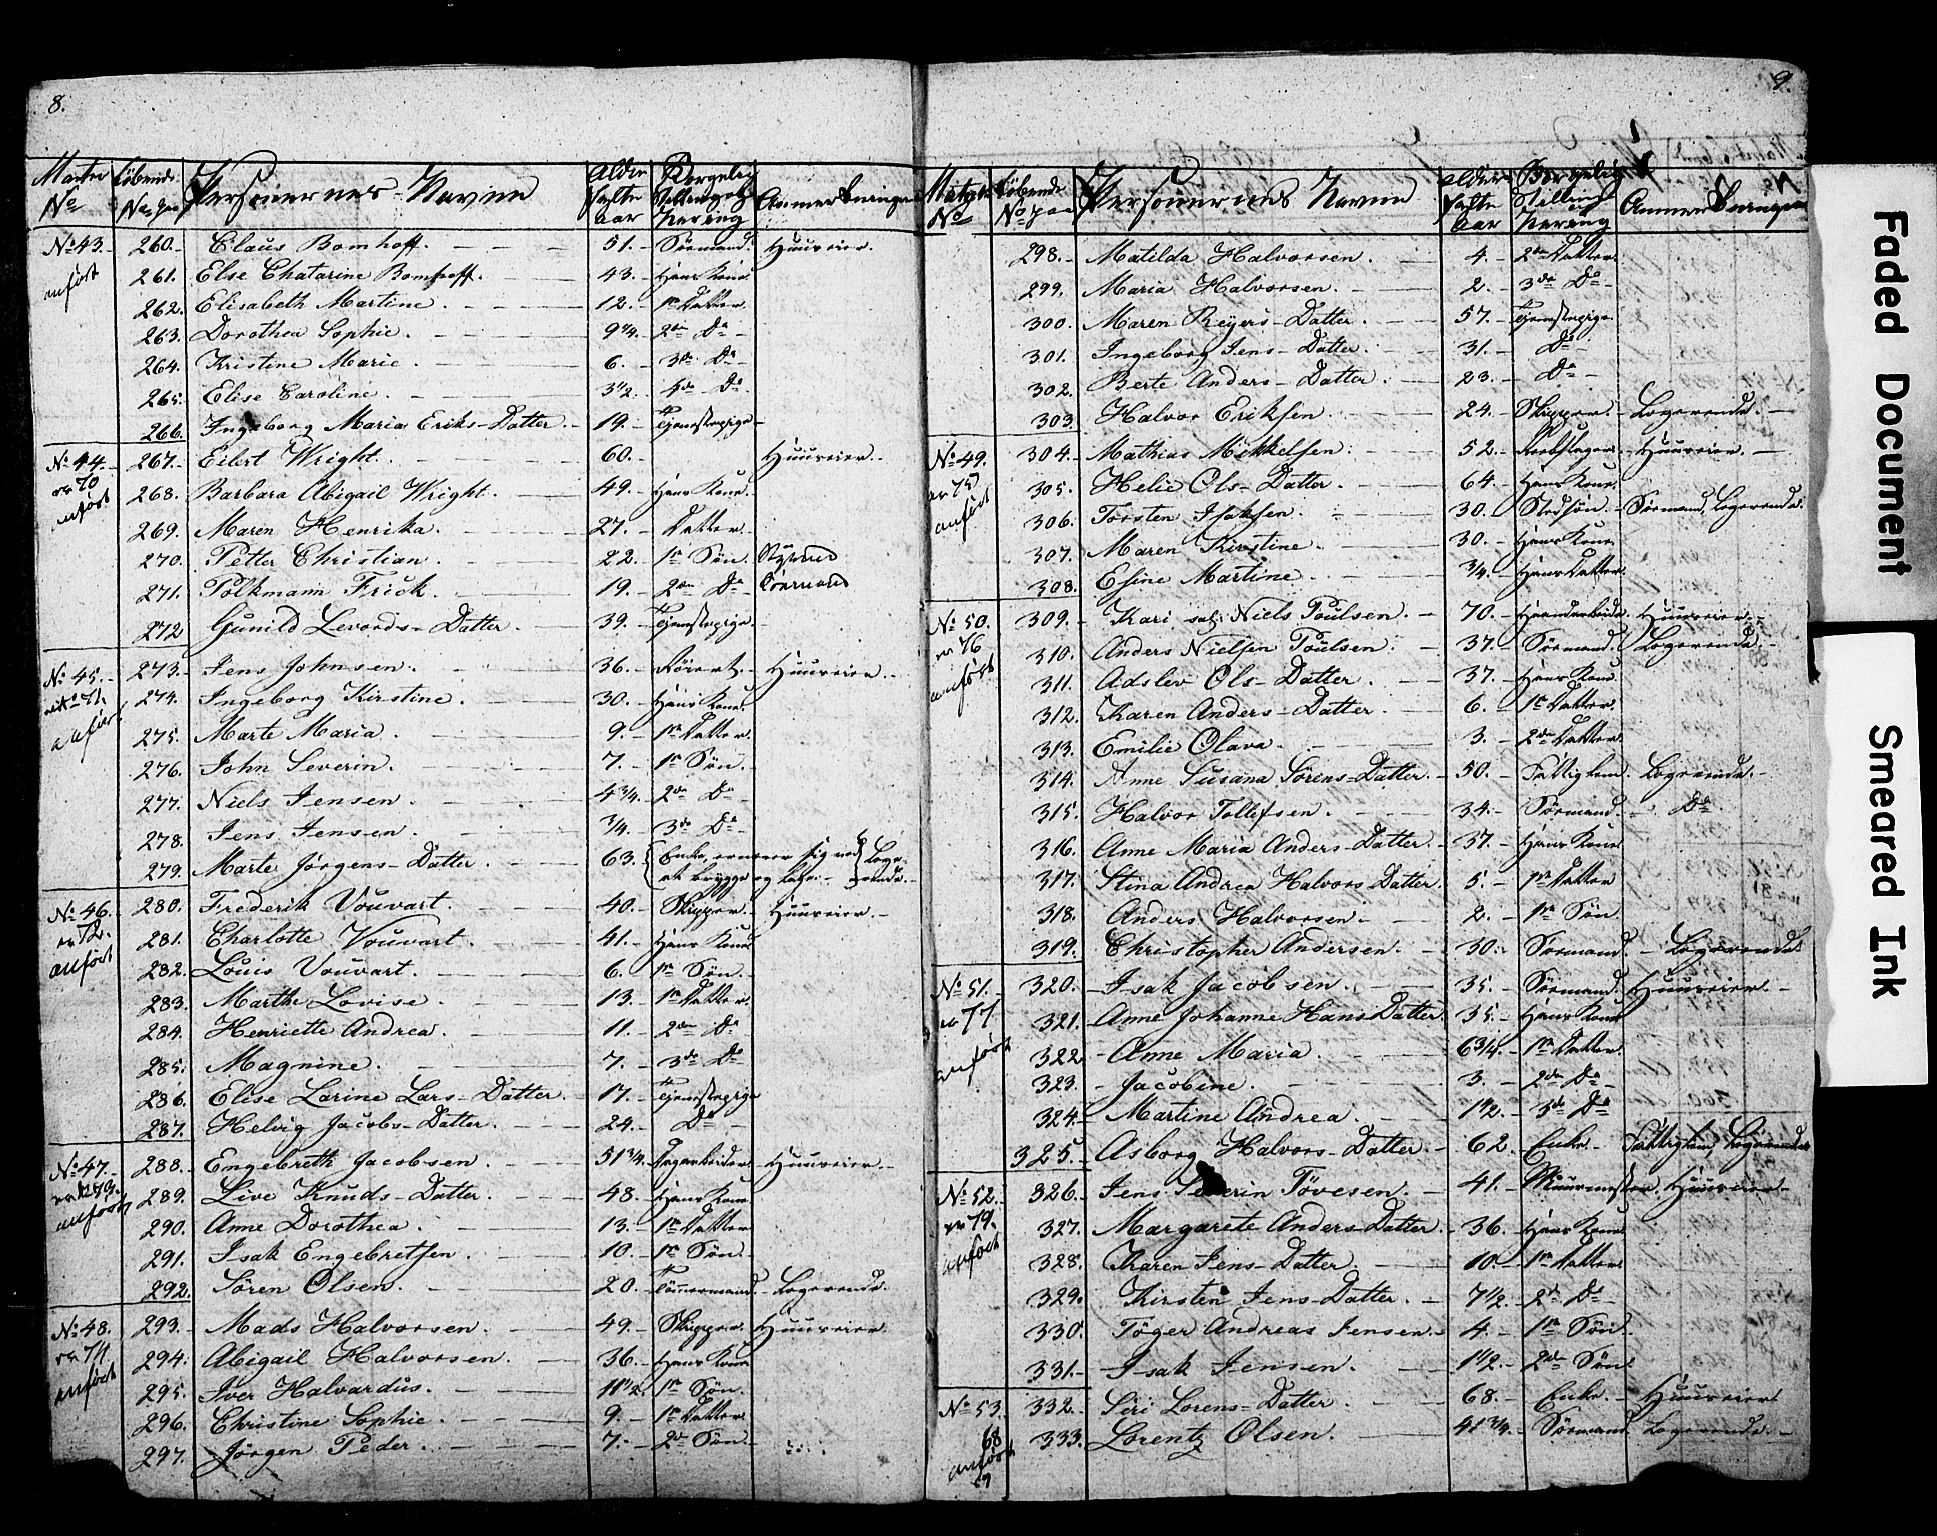 8.
No
Løbende
No
Personernes Navne
Alder
Borgelig
Stilling og
Næring
Anmerkninger
No 43. 260. Claus Bomhoff. 51. Sømand. Huuseier.
anført 261. Else Chatarine Bomhoff. 43. Hans Kone.
262. Elisabeth Martine. 12. 1ste Datter.
263. Dorothea Sophie. 9 1/4. 2den Do
264. Kristine Marie. 6. 3de Do
265. Elise Caroline. 3 1/2. 4de Do
266. Ingeborg Maria Eriks-Datter. 19. Tjenestepige
No 44. 267. Eilert Wright. 60. Huuseier.
70 268. Barbara Abigail Wright. 49. Hans Kone.
anført 269. Maren Henrika. 27. Datter.
270. Petter Christian. 22. 1te Søn. Styrmand
271. Polkmann Frick. 19. 2den Do Sømand
272 Gunild Levords-Datter. 39. Tjenestepige
No 45. 273. Jens Johnsen. 36. Huuseier.
71. 274. Ingeborg Kirstine. 30. Hans Kone.
anført 275. Marte Maria. 9. 1te Datter.
276. John Severin. 7. 1te Søn.
277. Niels Jensen. 4 3/4. 2den Do
278. Jens Jensen. 3/4. 3de Do
279. Marte Jørgens-Datter. 63. Enke, ernærer sig ved Loge-
at brygge og rende.
No 46. 280. Frederik Vouvart. 40. Skipper. Huuseier.
72. 281. Charlotte Vouvart. 41. Hans Kone
anført 282. Louis Vouvart. 6. 1te Søn.
283. Marthe Lovise. 13. 1te Datter.
284. Henriette Andrea. 11. 2den Do
285. Magnine. 7. 3de Do
286. Elise Larine Lars-Datter. 17. Tjenestepige
287. Helvig Jacobs-Datter. 24. Do
No 47. 288. Engebreth Jacobsen. 51 3/4. Dagarbeider. Huuseier.
73. 289. Live Knuds-Datter. 48. Hans Kone
anført 290. Anne Dorothea. 13. 1te Datter
291. Isak Engebretsen. 10. 1te Søn.
292. Søren Olsen. 20. Tømmermand. Logerende.
No 48. 293. Mads Halvorsen. 49. Skipper. Huuseier.
74 294. Abigail Halvorsen. 36. Hans Kone
anført 295. Iver Halvardus. 11 1/2. 1te Søn.
296. Christine Sophie. 9. 1te Datter
297. Jørgen Peder. 7. 2de Søn.
9.
No
Løbende
No
Personernes Navne
Alder
Borgelig
Stilling
Næring
Anmerkninger
298. Matilda Halvorsen. 4. 2den Datter.
299. Maria Halvorsen. 2. 3de Do
300. Maren Reyers-Datter. 57. Tjenestepige.
301. Ingeborg Jens-Datter. 31. Do
302. Berte Anders-Datter. 23. Do
303. Halvor Eriksen. 24. Skipper. Logerende.
No 49. 304. Mathias Mikkelsen. 52. Rebslager. Huuseier.
75 305. Helie Ols-Datter. 64. Hans Kone.
anført 306. Torsten Isaksen. 30. Stedsøn. Sømand, Logerende.
307. Maren Kirstine. 30. Hans Kone.
308. Esine Martine. 3/4. Hans Datter.
No 50. 309. Kari sal. Niels Poulsen. 70. Haandarbeide. Huuseier.
76 310. Anders Nielsen Poulsen. 37. Sømand. Logerende.
anført 311. Adslev Ols-Datter. 37. Hans Kone
312. Karen Anders-Datter. 6. 1te Datter.
313. Emilie Olava. 3. 2den Datter.
314. Anne Susana Sørens-Datter. 50. Fattiglem. Logerende.
315. Halvor Tollefsen. 34. Sømand. Do
316. Anne Maria Anders-Datter. 37. Hans Kone
317. Stina Andrea Halvors Datter. 5. 1te Datter
318. Anders Halvorsen. 2. 1te Søn
319. Christopher Andersen. 30. Sømand. Logerende.
No 51. 320. Isak Jacobsen. 35. Sømand. Huuseier.
77 321. Anne Johanne Hans Datter. 35. Hans Kone
anført 322. Anne Maria. 6 3/4. 1te Datter.
323. Jacobine. 3. 2den Do
324. Martine Andrea. 1 1/2. 3de Do
325. Asborg Halvors-Datter. 62. Enke. Fattiglem, Logerende
No 52. 326. Jens Severin Tövesen. 41. Muurmester. Huuseier.
79. 327. Margarete Anders-Datter. 36. Hans Kone
anført 328. Karen Jens-Datter. 10. 1te Datter.
329. Kirsten Jens-Datter. 7 1/2. 2d Do
330. Töger Andreas Jensen. 4. 1te Søn.
331. Isak Jensen. 1 1/2. 2de Søn.
No 53. 332. Siri Lorens-Datter. 68. Enke. Huuseier
68 333. Lorentz Olsen. 41 3/4. Sømand. Logerende.
anført
Faded Document
Smeared Ink